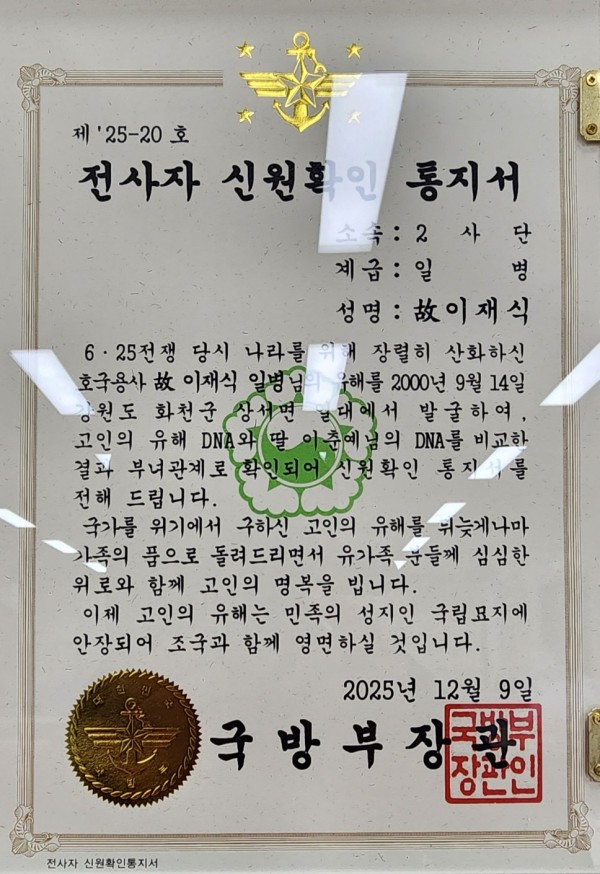 제 '25-20 호
전사자 신원확인 통지서
소속 : 2 사 단
계급 : 일 병
성명 : 故 이재식
6·25전쟁 당시 나라를 위해 장렬히 산화하신
호국용사 故 이재식 일병님의 유해를 2000년 9월 14일
강원도 화천군 상서면 일대에서 발굴하여,
고인의 유해 DNA와 딸 이춘예님의 DNA를 비교한
결과 부녀관계로 확인되어 신원확인 통지서를
전해 드립니다.
국가를 위기에서 구하신 고인의 유해를 뒤늦게나마
가족의 품으로 돌려드리면서 유가족 분들께 심심한
위로와 함께 고인의 명복을 빕니다.
이제 고인의 유해는 민족의 성지인 국립묘지에
안장되어 조국과 함께 영면하실 것입니다.
2025년 12월 9일
국방부장관
국방부
장관인
대한민국
국방부
전사자 신원확인통지서